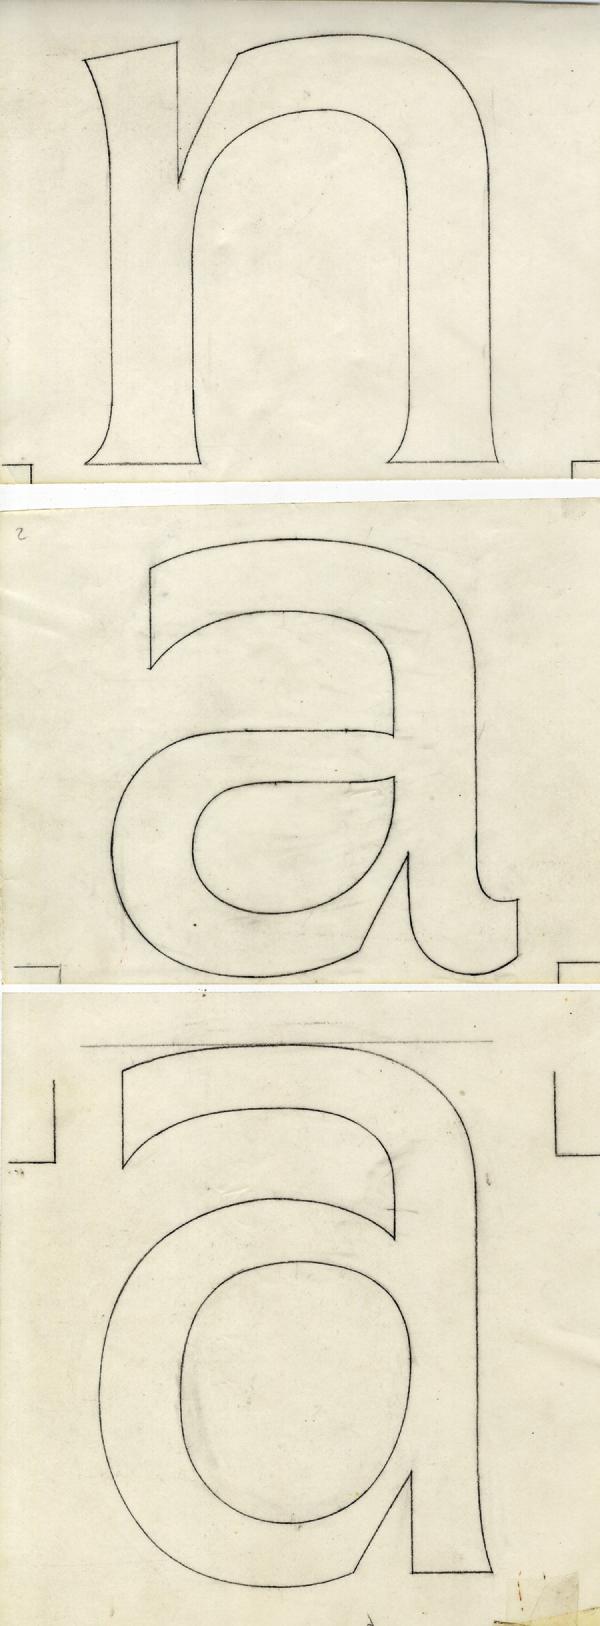 n
2
a
a